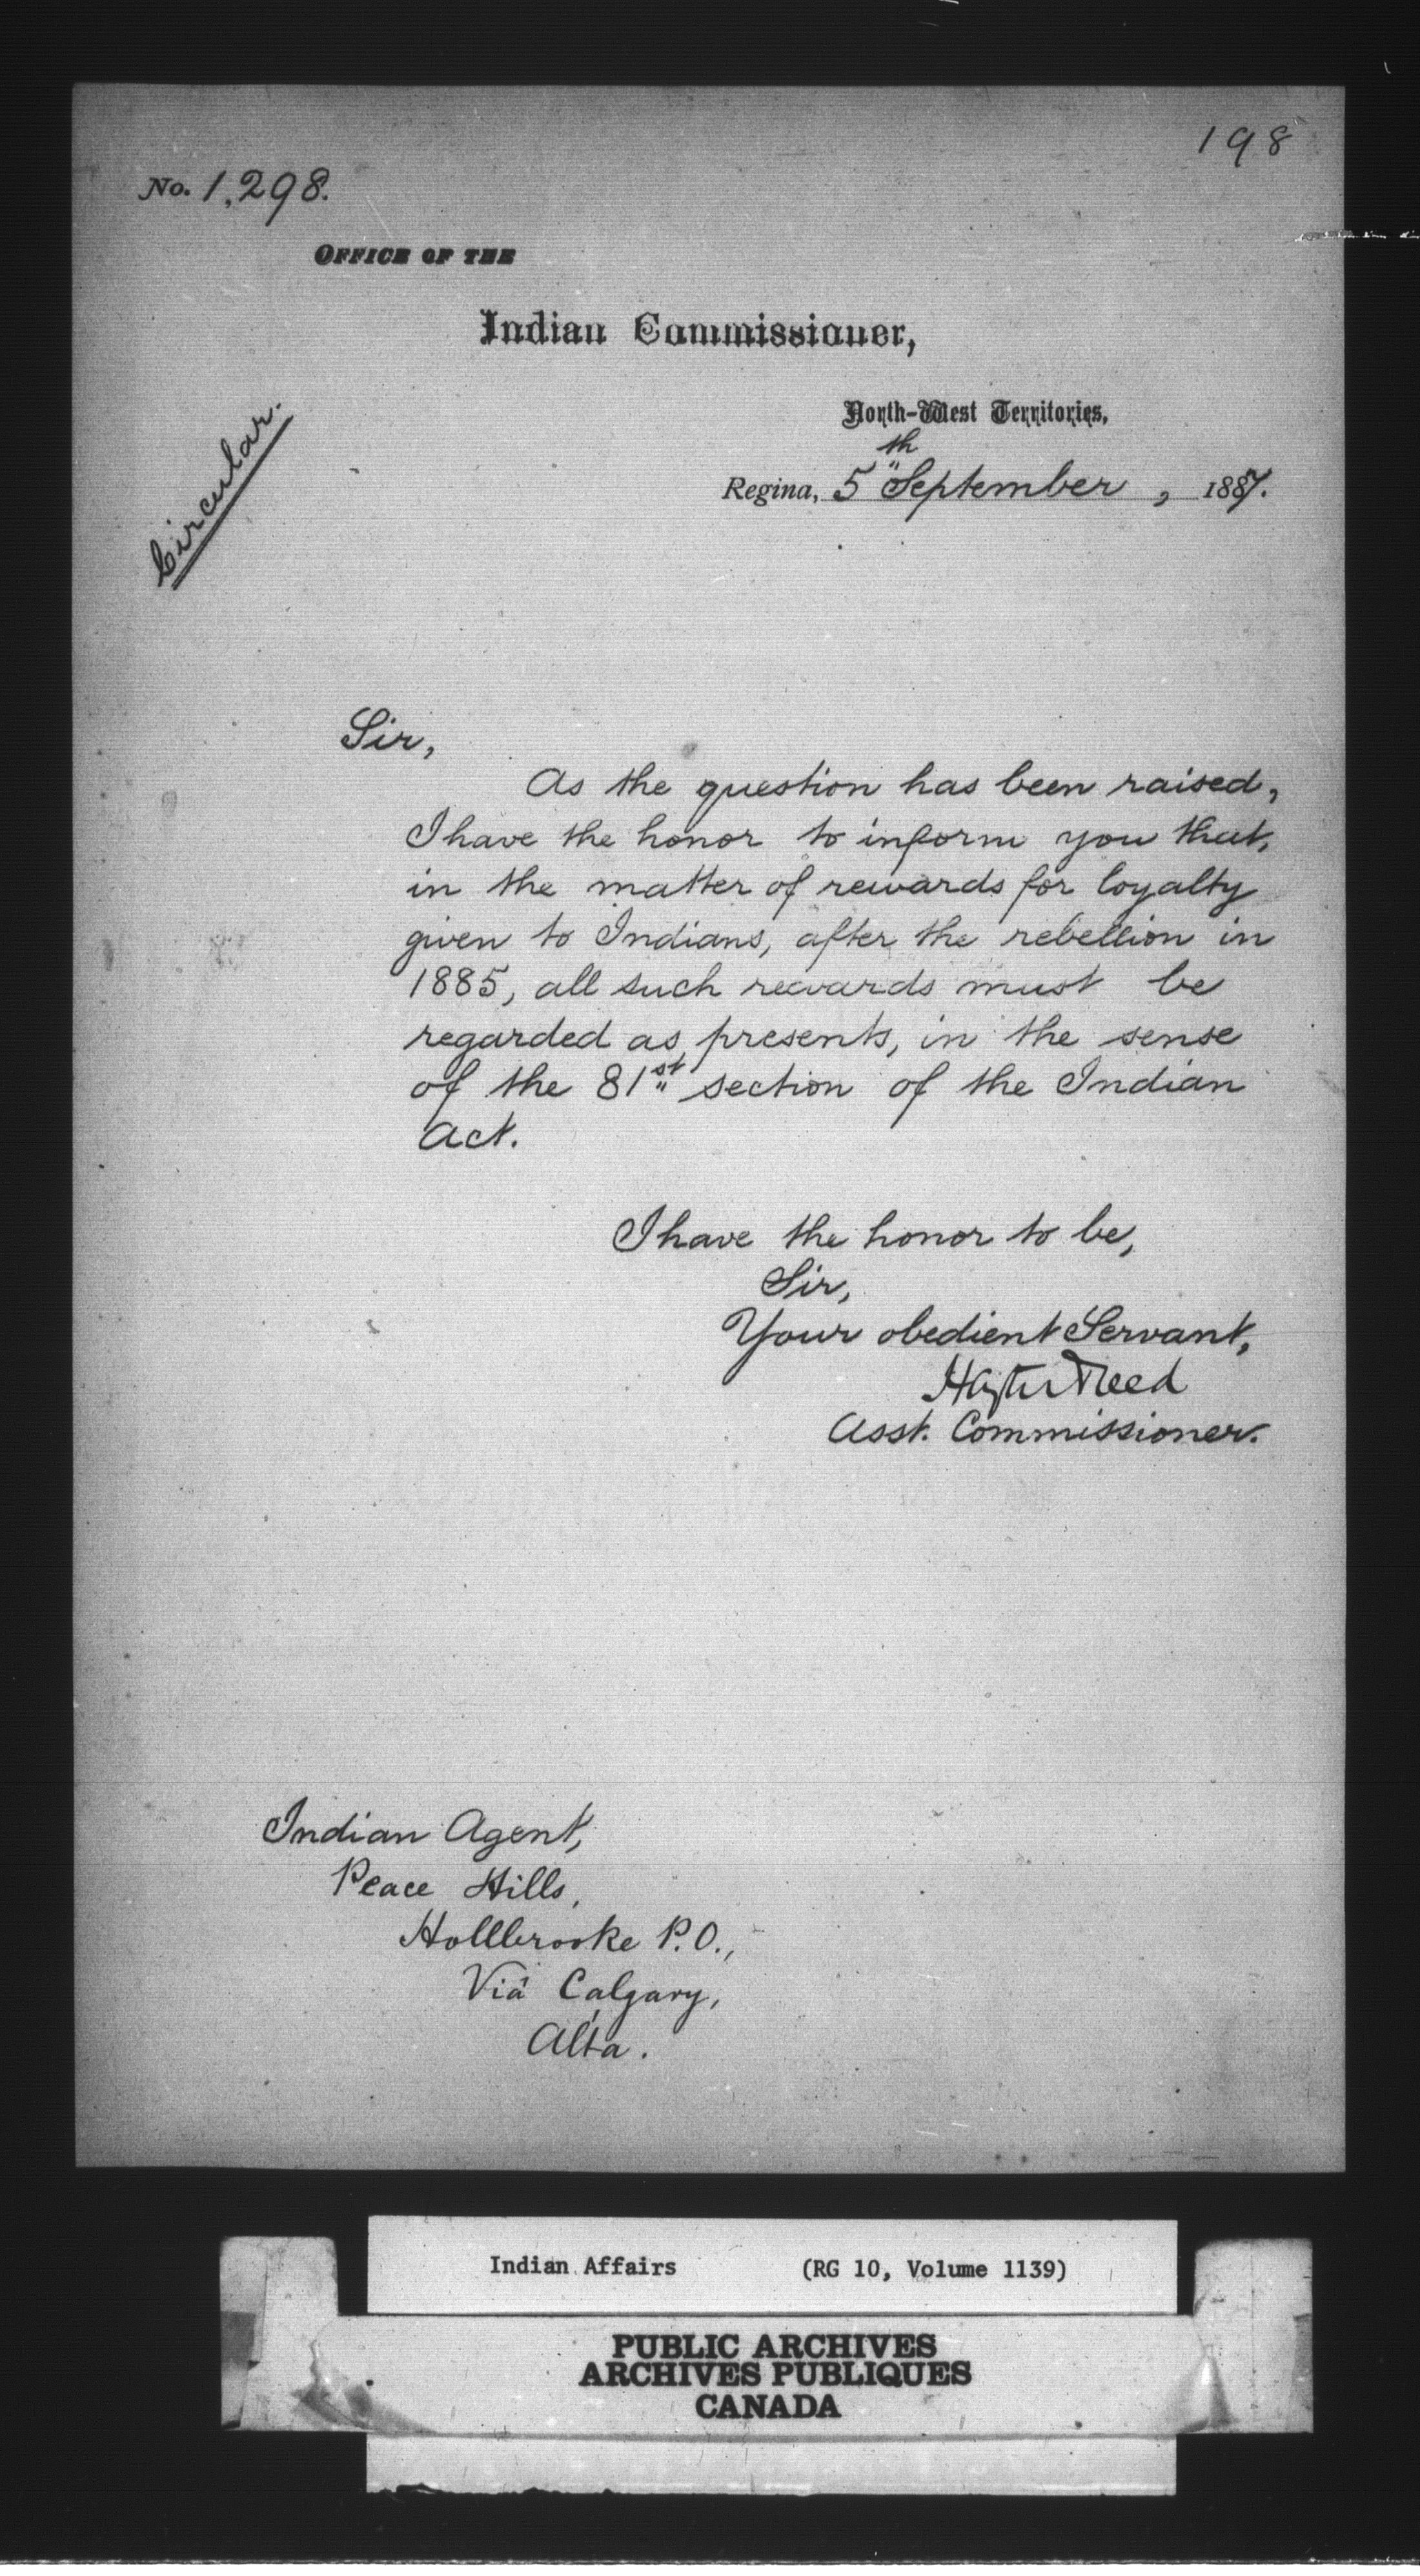 198
No. 1,298.
OFFICE OF THE
Indian Commissioner,
North-West Territories,
Regina, 5th September, 1887.
Circular.
Sir,
As the question has been raised,
I have the honor to inform you that,
in the matter of rewards for loyalty
given to Indians, after the rebellion in
1885, all such rewards must be
regarded as presents, in the sense
of the 81st section of the Indian
Act.
I have the honor to be,
Sir,
Your obedient Servant,
Hayter Reed
Asst. Commissioner.
Indian Agent,
Peace Hills,
Hollbrooke P.O.,
Viâ Calgary,
Alta.
Indian Affairs (RG 10, Volume 1139)
PUBLIC ARCHIVES
ARCHIVES PUBLIQUES
CANADA